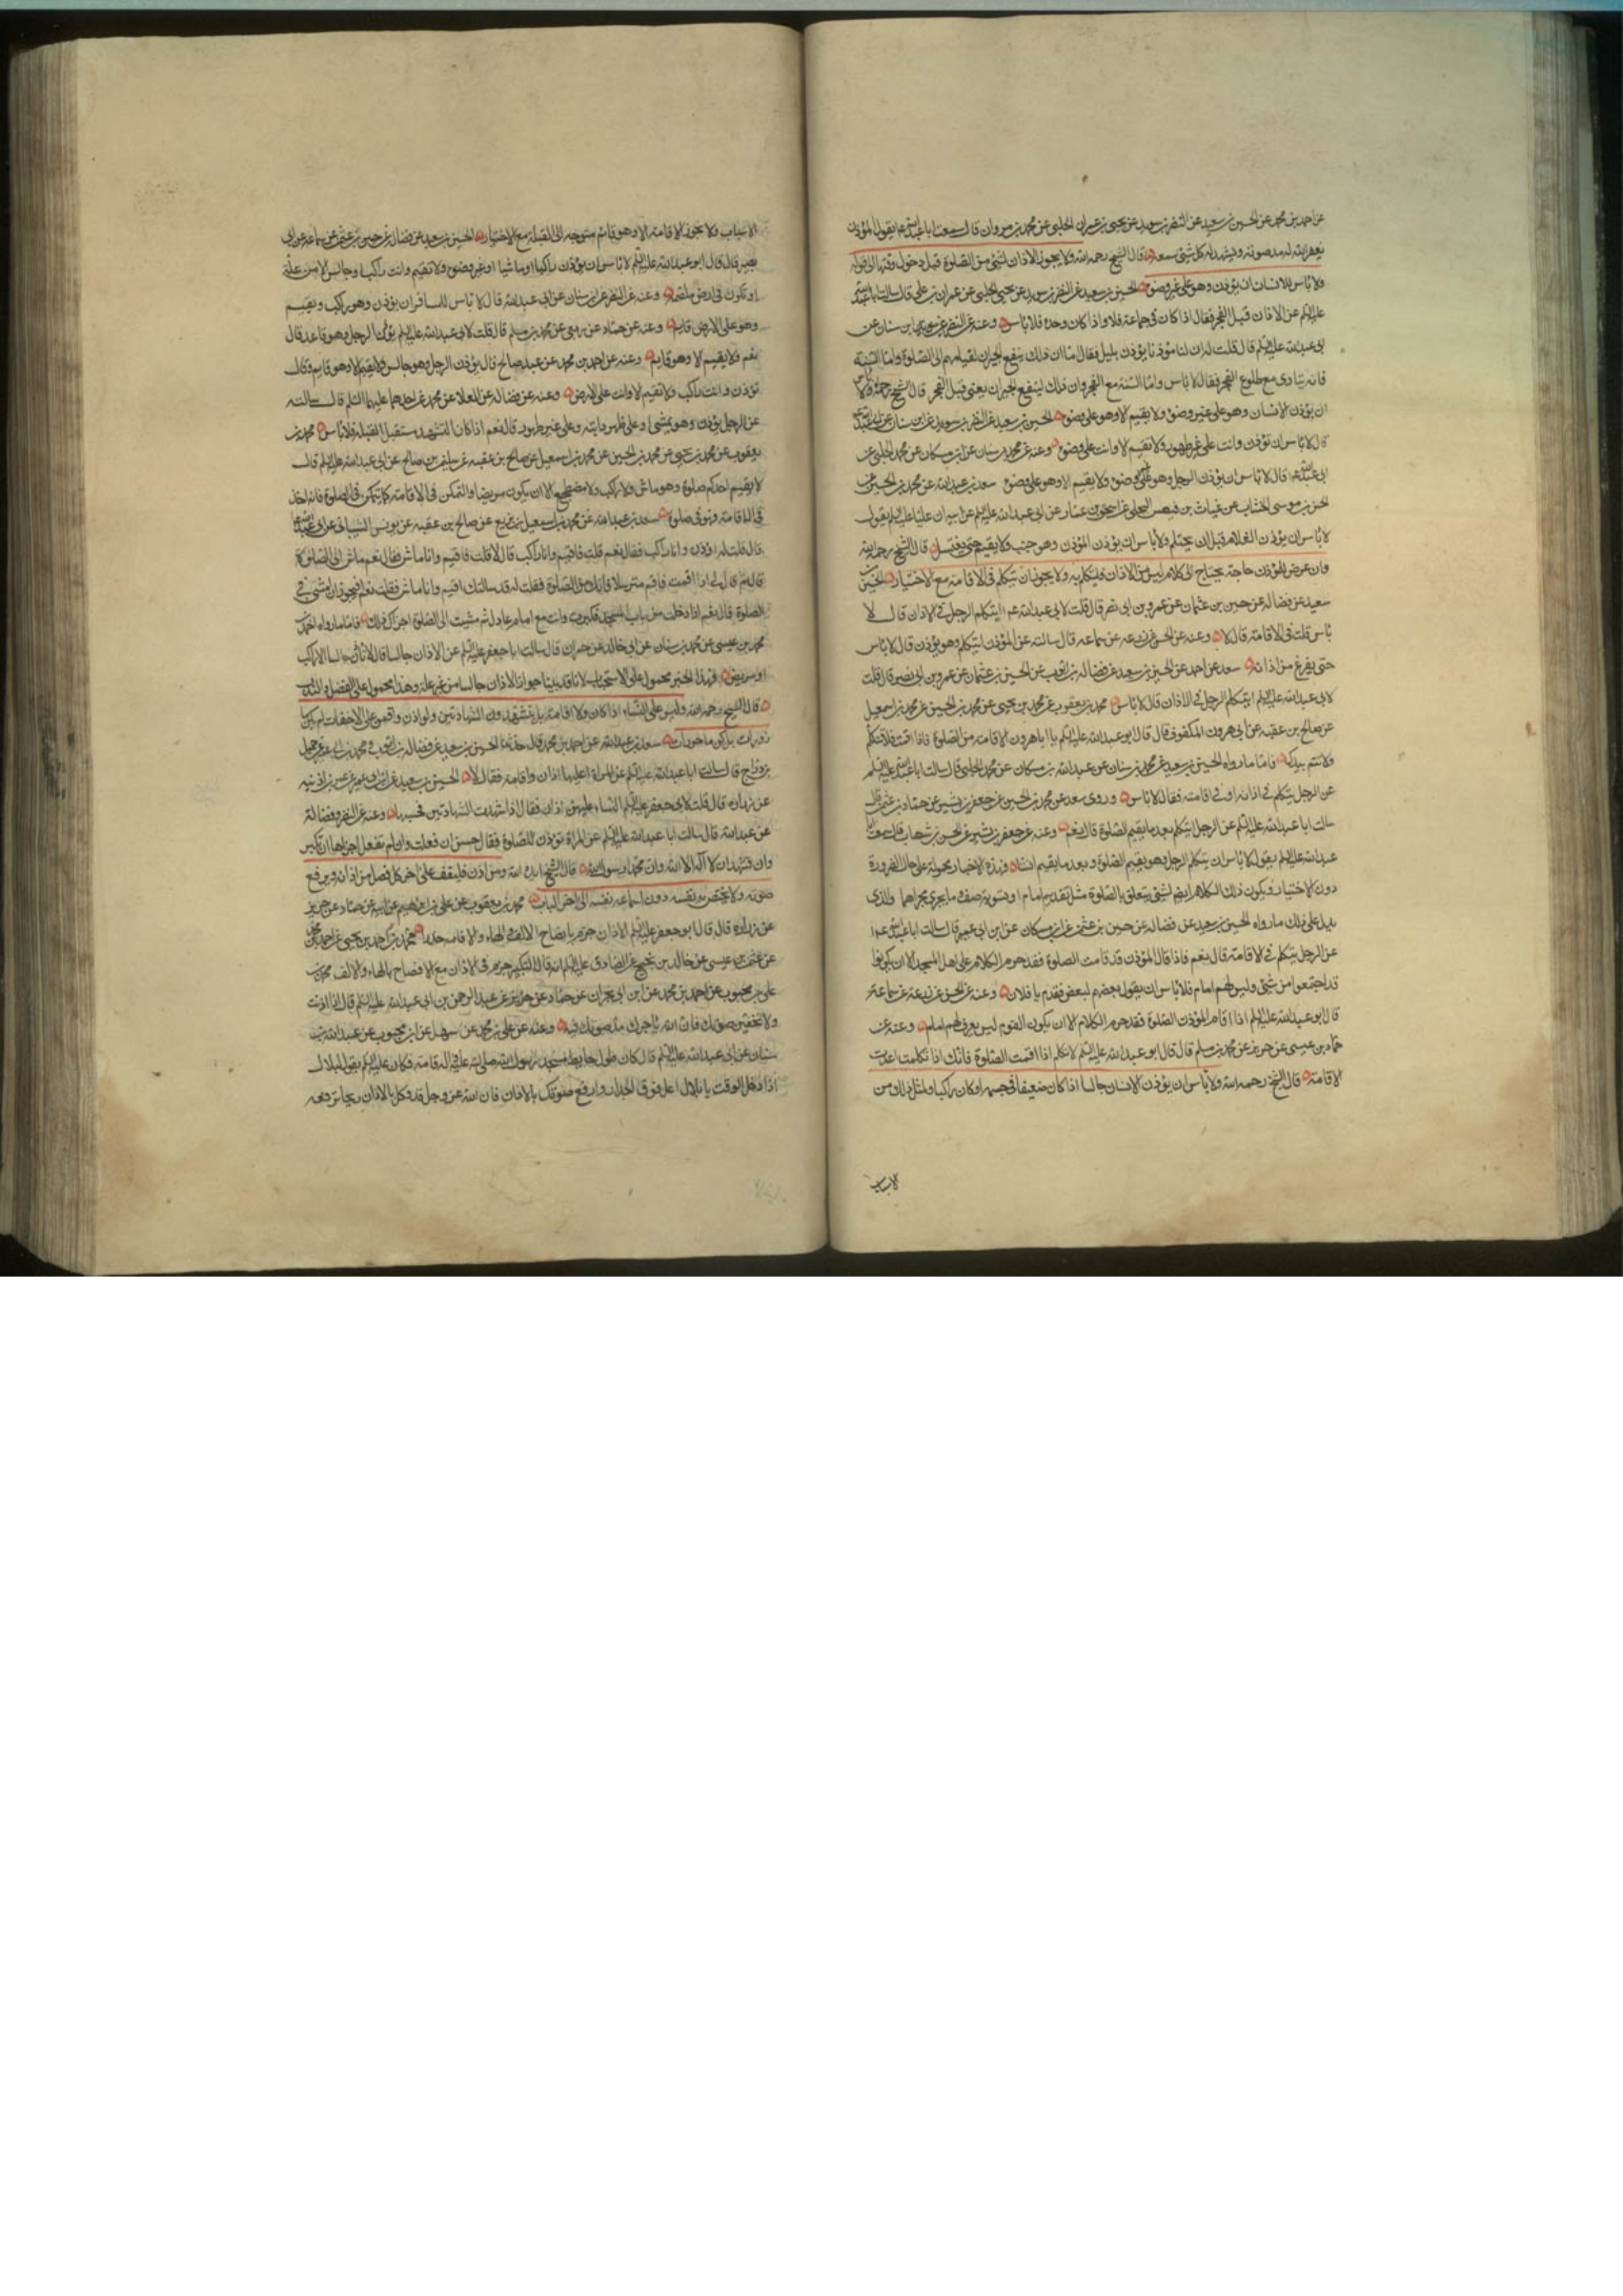 عن احمد بن محمد عن الحسين بن سعيد عن النضر بن سويد عن يحيى بن عمران الحلبى عن محمد بن مروان قال سمعت ابا عبدالله ع يقول المؤذن
يغفر الله له مد صوته ويشهد له كل شئ سمعه قال الشيخ رحمه الله ولا يجوز الاذان لشئ من الصلوة قبل دخول وقتها الى قوله
ولا باس للانسان ان يؤذن وهو على غير وضوء الحسين بن سعيد عن النضر بن سويد عن يحيى الحلبى عن عمران بن على قال سالت ابا عبدالله
عليه السلم عن الاذان قبل الفجر فقال اذا كان فى جماعة فلا واذا كان وحده فلا باس وعنه عن النضر عن ابن سنان عن
ابى عبدالله عليه السلم قال قلت له ان لنا مؤذنا يؤذن بليل فقال اما ان ذلك ينفع الجيران لقيامهم الى الصلوة واما السنة
فانه ينادى مع طلوع الفجر فقال لا باس واما السنة مع الفجر وان ذلك لينفع الجيران يعنى قبل الفجر قال الشيخ رحمه الله ولا باس
ان يؤذن الانسان وهو على غير وضوء ولا يقيم الا وهو على وضوء الحسين بن سعيد عن النضر بن سويد عن ابن سنان عن ابى عبدالله
قال لا باس ان تؤذن وانت على غير طهور ولا تقيم الا وانت على وضوء وعنه عن محمد بن سنان عن ابن مسكان عن محمد الحلبى عن
ابى عبدالله ع قال لا باس ان يؤذن الرجل وهو على غير وضوء ولا يقيم الا وهو على وضوء سعد بن عبدالله عن محمد بن الحسين عن
الحسن بن موسى الخشاب عن غياث بن البجلى عن اسحق بن عمار عن ابى عبدالله عليه السلم عن ابيه ان عليا عليه السلم يقول
لا باس ان يؤذن الغلام قبل ان يحتلم ولا باس ان يؤذن المؤذن وهو جنب ولا يقيم حتى يغتسل قال الشيخ رحمه الله
وان عرض للمؤذن حاجة يحتاج الى كلام ليس من الاذان فليتكلم به ولا يجوز ان يتكلم فى الاقامة مع الاختيار الحسين بن
سعيد عن فضاله عن حسين بن عثمان عن عمرو بن ابى نصر قال قلت لابى عبدالله ع ايتكلم الرجل فى الاذان قال لا
باس قلت فى الاقامة قال لا وعنه عن الحسن عن زرعه عن سماعه قال سالته عن المؤذن ايتكلم وهو يؤذن قال لا باس
حتى يفرغ من اذانه سعد عن احمد عن الحسين بن سعيد عن فضاله بن ايوب عن الحسين بن عثمان عن عمرو بن ابى نصر قال قلت
لابى عبدالله عليه السلم ايتكلم الرجل فى الاذان قال لا باس محمد بن يعقوب عن محمد بن يحيى عن محمد بن الحسين عن محمد بن اسمعيل
عن صالح بن عقبه عن ابى هرون المكفوف قال قال ابو عبدالله عليه السلم يا ابا هرون الاقامة من الصلوة فاذا اقمت فلا تتكلم
ولا تؤم بيدك فاما ما رواه الحسين بن سعيد عن محمد بن سنان عن عبدالله بن مسكان عن محمد الحلبى قال سالت ابا عبدالله عليه السلم
عن الرجل يتكلم فى اذانه او فى اقامته فقال لا باس وروى سعد عن محمد بن الحسين عن جعفر بن بشير عن حماد بن عثمن قال
سالت ابا عبدالله عليه السلم عن الرجل يتكلم بعد ما يقيم الصلوة قال نعم وعنه عن جعفر بن بشير عن الحسن بن شهاب قال سمعت ابا
عبدالله عليه السلم يقول لا باس ان يتكلم الرجل وهو يقيم الصلوة وبعد ما يقيم ان شاء فهذه الاخبار محمولة على حال الضرورة
دون الاختيار ويكون ذلك الكلام ايضا لشئ يتعلق بالصلوة مثل تقديم امام او تسوية صف وما يجرى مجراهما والذى
يدل على ذلك ما رواه الحسين بن سعيد عن فضاله عن حسين بن عثمن عن ابن مسكان عن ابن ابى عمير قال سالت ابا عبدالله ع
عن الرجل يتكلم فى الاقامة قال نعم فاذا قال المؤذن قد قامت الصلوة فقد حرم الكلام على اهل المسجد الا ان يكونوا
قد اجتمعوا من شتى وليس لهم امام فلا باس ان يقول بعضهم لبعض تقدم يا فلان وعنه عن الحسن عن زرعه عن سماعه
قال ابو عبدالله عليه السلم اذا اقام المؤذن الصلوة فقد حرم الكلام الا ان يكون القوم ليس يعرف لهم امام وعنه عن
حماد بن عيسى عن حريز عن محمد بن مسلم قال قال ابو عبدالله عليه السلم لا تتكلم اذا اقمت الصلوة فانك اذا تكلمت اعدت
الاقامة قال الشيخ رحمه الله ولا باس ان يؤذن الانسان جالسا اذا كان ضعيفا فى جسمه او كان راكبا ولمثل ذلك من
الاسباب
الاسباب ولا يجوز الاقامة الا وهو قائم متوجه الى القبلة مع الاختيار الحسين بن سعيد عن فضاله عن حسين بن عثمن عن سماعه عن ابى
بصير قال قال ابو عبدالله عليه السلم لا باس ان يؤذن راكبا او ماشيا او على غير وضوء ولا تقيم وانت راكب او جالس الا من علة
او تكون فى ارض ملصة وعنه عن النضر عن ابن سنان عن ابى عبدالله قال لا باس للمسافر ان يؤذن وهو راكب ويقيم
وهو على الارض قايم وعنه عن حماد عن ربعى عن محمد بن مسلم قال قلت لابى عبدالله عليه السلم يؤذن الرجل وهو قاعد قال
نعم ولا يقيم الا وهو قايم وعنه عن احمد بن محمد عن عبد صالح قال يؤذن الرجل وهو جالس ولا يقيم الا وهو قايم وقال
تؤذن وانت راكب ولا تقيم الا وانت على الارض وعنه عن فضاله عن العلا عن محمد عن احدهما عليهما السلم قال سالته
عن الرجل يؤذن وهو يمشى او على ظهر دابته وعلى غير طهور قال نعم اذا كان التشهد مستقبل القبلة فلا باس محمد بن
يعقوب عن محمد بن يحيى عن محمد بن الحسين عن محمد بن اسمعيل عن صالح بن عقبه عن سليمن بن صالح عن ابى عبدالله عليه السلم قال
لا يقيم احدكم صلوة وهو ماش ولا راكب ولا مضطجع الا ان يكون مريضا وليتمكن فى الاقامة كما يتمكن فى الصلوة فانه اذا اخذ
فى الاقامة فهو فى صلوة سعد بن عبدالله عن محمد بن اسمعيل بن بزيع عن صالح بن عقبه عن يونس الشيبانى عن ابى عبدالله
قال قلت له اؤذن وانا راكب فقال نعم قلت فاقيم وانا راكب قال لا قلت فاقيم وانا ماش فقال نعم ماش الى الصلوة
قال ثم قال لى اذا اقمت فاقم مترسلا فانك فى الصلوة فقلت له قد سالتك اقيم وانا ماش فقلت نعم افيجوز ان امشى فى
الصلوة قال نعم اذا دخلت من باب المسجد فكبرت وانت مع امام عادل ثم مشيت الى الصلوة اجزاك ذلك فاما ما رواه احمد بن
محمد بن عيسى عن محمد بن سنان عن ابى خالد عن حمران قال سالت ابا جعفر عليه السلم عن الاذان جالسا قال لا يؤذن جالسا الا راكب
او مريض فهذا الخبر محمول على الاستحباب لانا قد بينا جواز الاذان جالسا من غير علة وهذا محمول على الفضل والندب
قال الشيخ رحمه الله وليس على النساء اذان ولا اقامة بل يتشهدن الشهادتين ولو اذن واقمن على الاخفات لم يكن
مأزورات بل كن ماجورات سعد بن عبدالله عن احمد بن محمد قال حدثنا الحسين بن سعيد عن فضاله بن ايوب ومحمد بن ابى عمير عن جميل
بن دراج قال سالت ابا عبدالله عليه السلم عن المراة اعليها اذان واقامة فقال لا الحسين بن سعيد عن ابن ابى عمير عن عمر بن اذينه
عن زراره قال قلت لابى جعفر عليه السلم النساء عليهن اذان فقال اذا شهدت الشهادتين فحسبها وعنه عن النضر وفضالة
عن عبدالله قال سالت ابا عبدالله عليه السلم عن المراة تؤذن للصلوة فقال حسن ان فعلت وان لم تفعل اجزاها ان تكبر
وان تشهد ان لا اله الا الله وان محمدا رسول الله قال الشيخ ايده الله ومن اذن فليقف على اخر كل فصل من اذانه ويرفع
صوته ولا يختص به نفسه دون اسماعه نفسه الى اخر الباب محمد بن يعقوب عن على بن ابرهيم عن ابيه عن حماد عن حريز
عن زراره قال قال ابو جعفر عليه السلم الاذان جزم بافصاح الالف والهاء والاقامة حدر محمد بن احمد بن يحيى عن احمد بن محمد
عن عثمن بن عيسى عن خالد بن نجيح عن الصادق عليه السلم انه قال التكبير جزم فى الاذان مع الافصاح بالهاء والالف محمد بن
على بن محبوب عن احمد بن محمد عن ابن ابى نجران عن حماد عن حريز عن عبد الرحمن بن ابى عبدالله عليه السلم قال اذا اذنت
ولا تخفين صوتك فان الله ياجرك مد صوتك فيه وعنه عن على بن محمد عن سهل عن ابن محبوب عن عبدالله بن
سنان عن ابى عبدالله عليه السلم قال كان طول حايط مسجد رسول الله صلى الله عليه واله قامة فكان عليه السلم يقول لبلال
اذا دخل الوقت يا بلال اعل فوق الجدار وارفع صوتك بالاذان فان الله عز وجل قد وكل بالاذان ريحا ترفعه